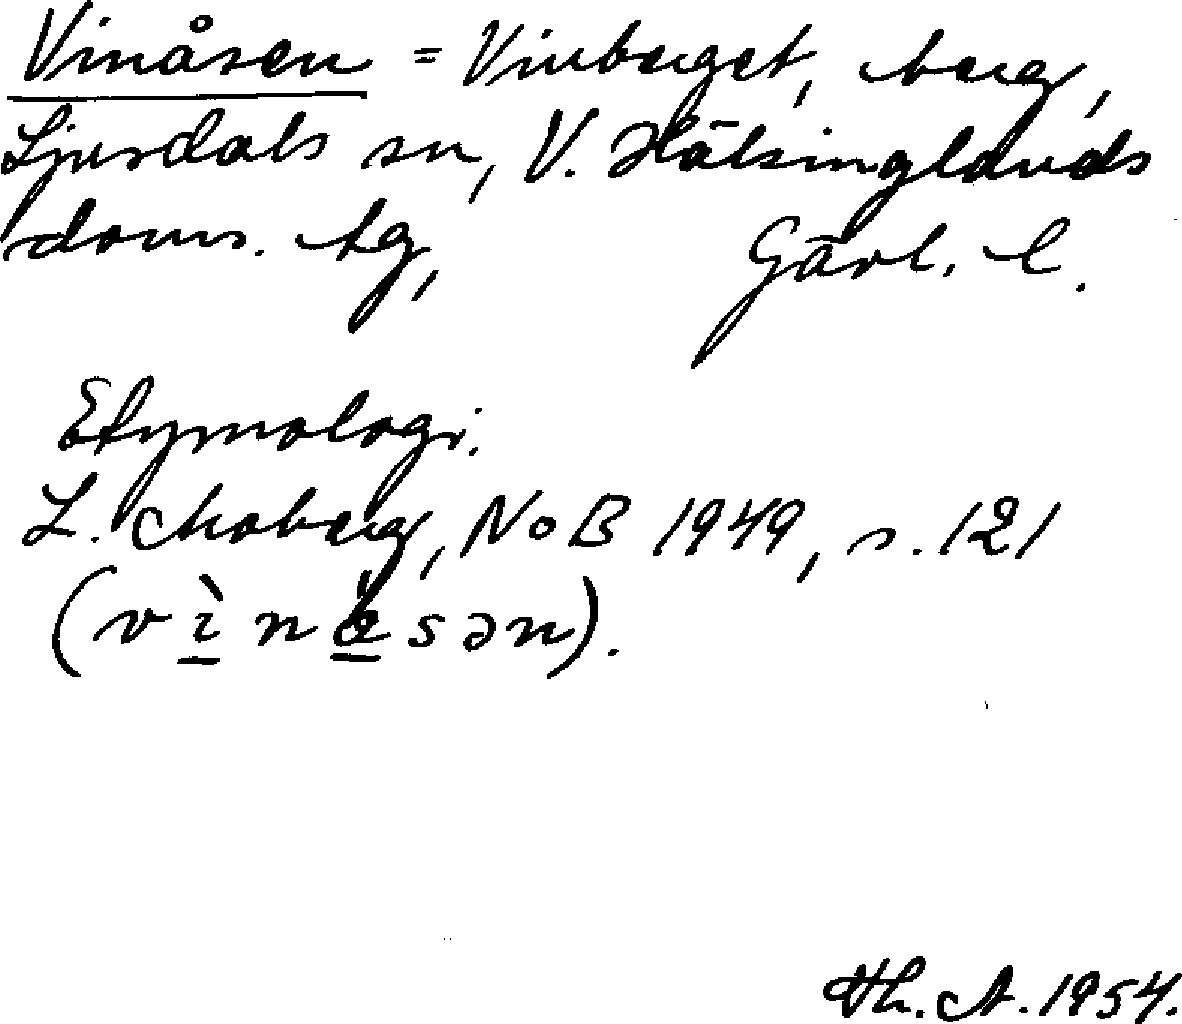 Vinåsen = Vinberget, berg,
Ljusdals sn, V. Hälsinglands
doms. tg, Gävl. l.
Etymologi.
L. Moberg, NoB 1949, s. 121
(v ì n s ə n).
Th. A. 1954.